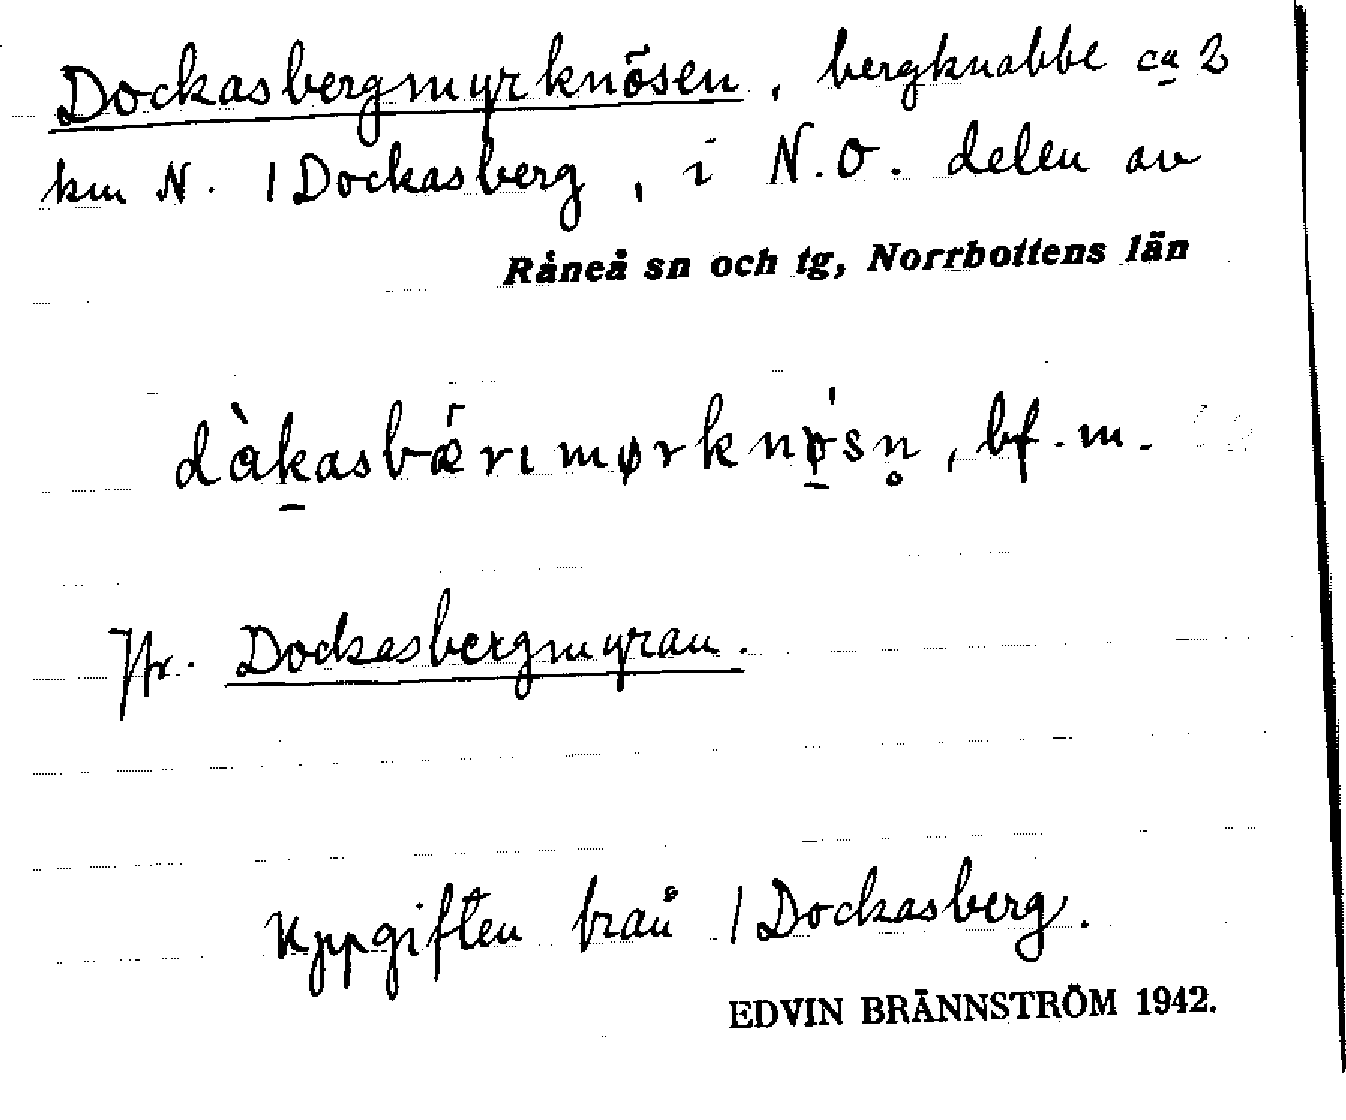 Dockasbergmyrknösen, bergknabbe ca 2
km N. /Dockasberg, i N.O. delen av
Råneå sn och tg, Norrbottens län
dàk̠asbǽrımørknǿ̠sn̥, bf. m.
Jfr. Dockasbergmyran.
Uppgiften från /Dockasberg.
EDVIN BRÄNNSTRÖM 1942.